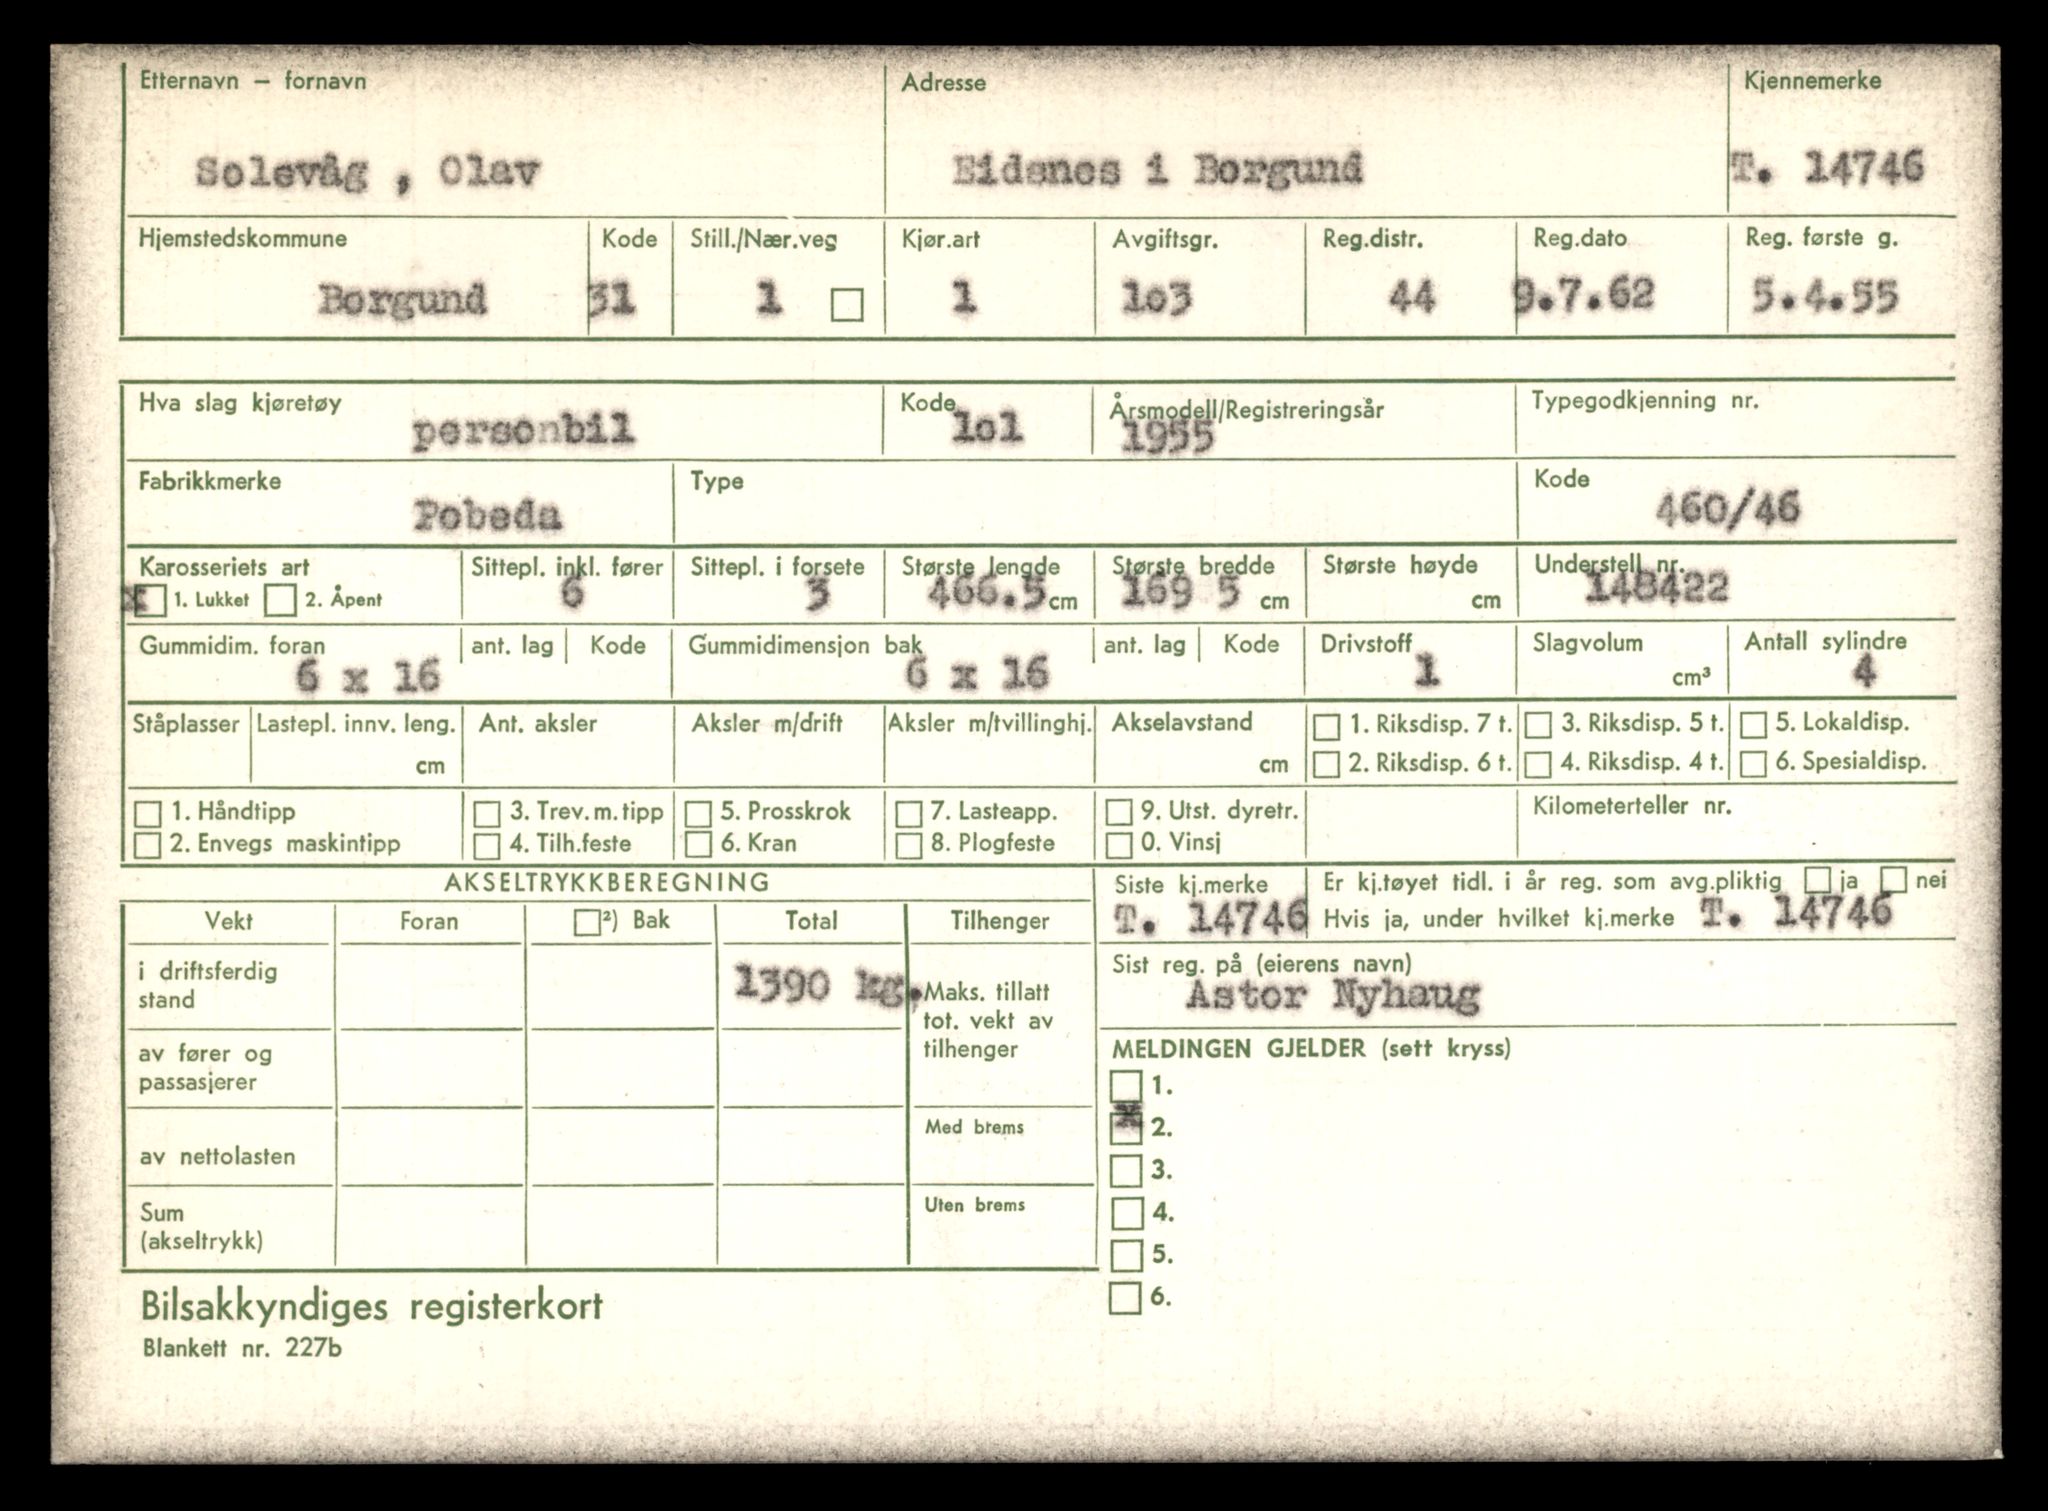 Etternavn – fornavn Adresse Kjennemerke
Solevåg , Olav Eidsnes i Borgund T. 14746
Hjemstedskommune Kode Still./Nær.veg Kjør.art Avgiftsgr. Reg.distr. Reg.dato Reg. første g.
Borgund 31 1 1 1o3 44 9.7.62 5.4.55
Hva slag kjøretøy Kode Årsmodell/Registreringsår Typegodkjenning nr.
personbil 1o1 1955
Fabrikkmerke Type Kode
Pobeda 460/46
Karosseriets art Sittepl. inkl. fører Sittepl. i forsete Største lengde Største bredde Største høyde Understell nr.
x 1. Lukket 2. Åpent 6 3 466.5 cm 169 5 cm cm 148422
Gummidim. foran ant. lag Kode Gummidimensjon bak ant. lag Kode Drivstoff Slagvolum Antall sylindre
6 x 16 6 x 16 1 cm³ 4
Ståplasser Lastepl. innv. leng. Ant. aksler Aksler m/drift Aksler m/tvillinghj. Akselavstand 1. Riksdisp. 7 t. 3. Riksdisp. 5 t. 5. Lokaldisp.
cm cm 2. Riksdisp. 6 t. 4. Riksdisp. 4 t. 6. Spesialdisp.
1. Håndtipp 3. Trev.m.tipp 5. Prosskrok 7. Lasteapp. 9. Utst. dyretr. Kilometerteller nr.
2. Envegs maskintipp 4. Tilh.feste 6. Kran 8. Plogfeste 0. Vinsj
AKSELTRYKKBEREGNING Siste kj.merke Er kj.tøyet tidl. i år reg. som avg.pliktig ja nei
Vekt Foran ²) Bak Total Tilhenger T. 14746 Hvis ja, under hvilket kj.merke T. 14746
i driftsferdig stand 1390 kg. Maks. tillatt tot. vekt av tilhenger Sist reg. på (eierens navn)
Astor Nyhaug
av fører og passasjerer MELDINGEN GJELDER (sett kryss)
1.
Med brems x 2.
av nettolasten 3.
Sum (akseltrykk) Uten brems 4.
5.
Bilsakkyndiges registerkort 6.
Blankett nr. 227b